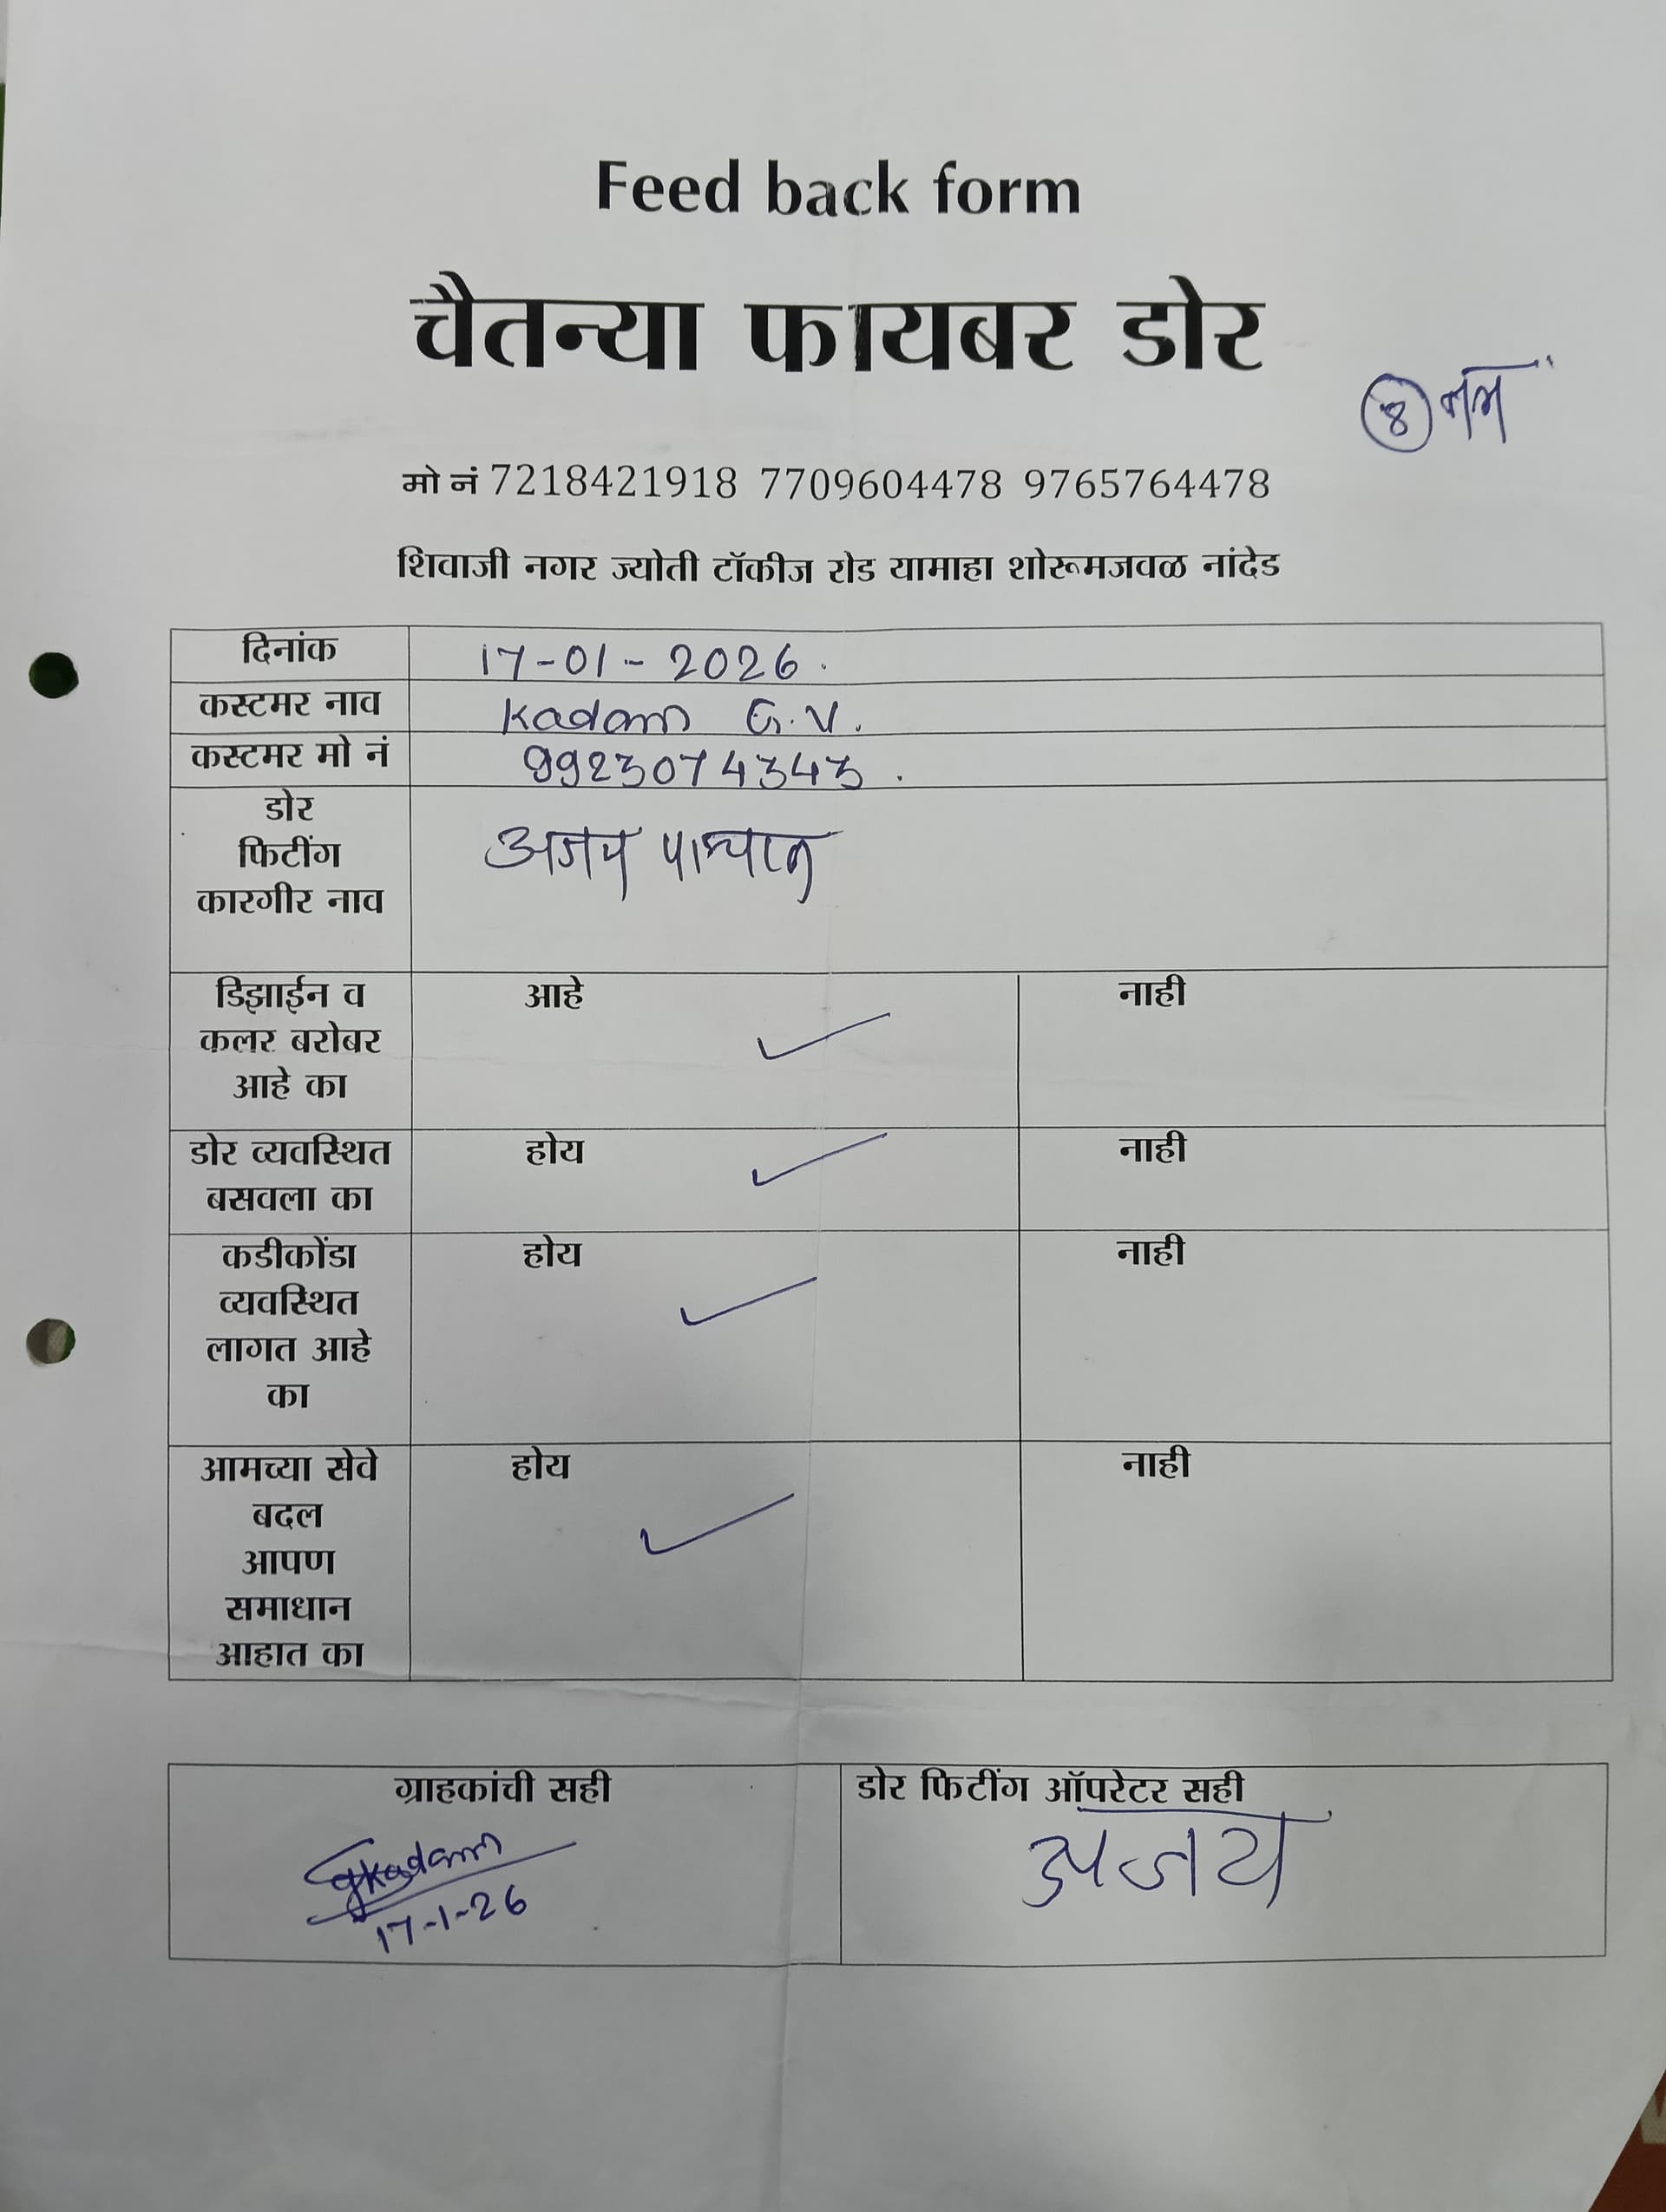 Feed back form
चैतन्या फायबर डोर
8 नग
मो नं 7218421918 7709604478 9765764478
शिवाजी नगर ज्योती टॉकीज रोड यामाहा शोरूमजवळ नांदेड
दिनांक 17-01-2026.
कस्टमर नाव Kadam G.V.
कस्टमर मो नं 9923074343.
डोर
फिटींग अजय
कारगीर नाव
डिझाईन व आहे ✓ नाही
कलर बरोबर
आहे का
डोर व्यवस्थित होय ✓ नाही
बसवला का
कडीकोंडा होय ✓ नाही
व्यवस्थित
लागत आहे
का
आमच्या सेवे होय ✓ नाही
बदल
आपण
समाधान
आहात का
ग्राहकांची सही डोर फिटींग ऑपरेटर सही
gkadam अजय
17-1-26